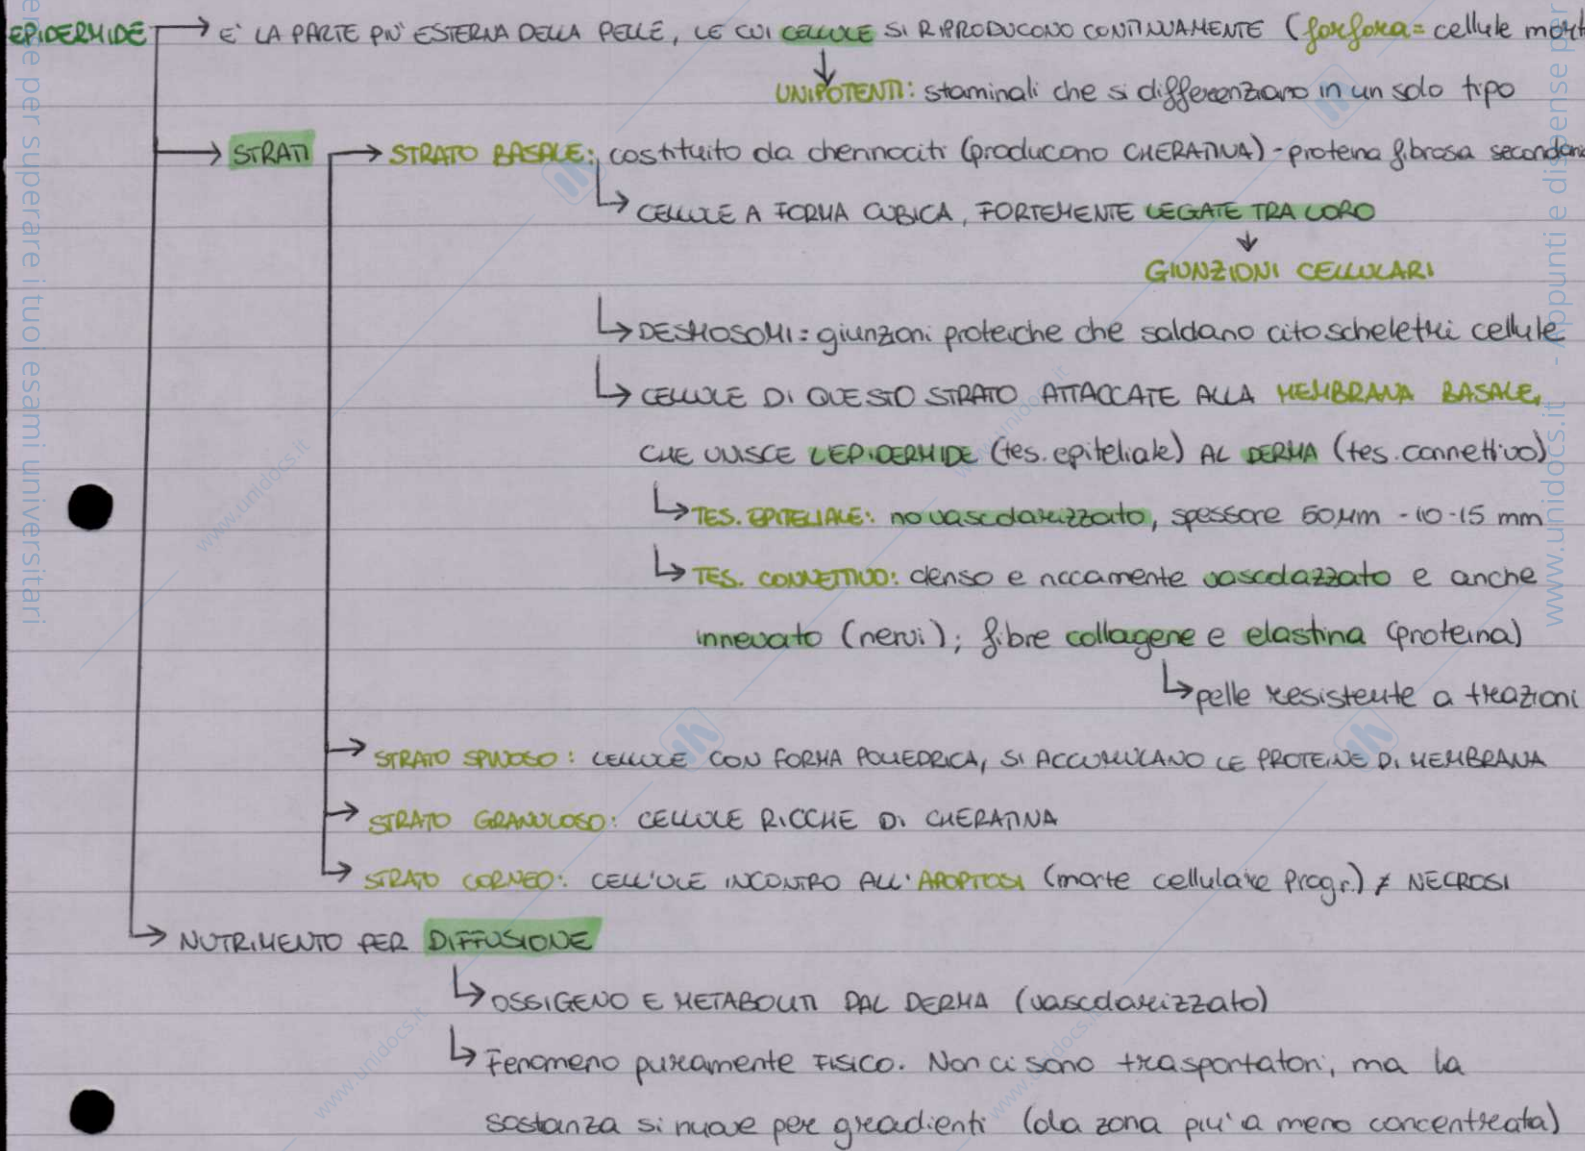 EPIDERMIDE → E' LA PARTE PIU' ESTERNA DELLA PELLE, LE CUI CELLULE SI RIPRODUCONO CONTINUAMENTE (forfora = cellule mort
UNIPOTENTI: staminali che si differenziano in un solo tipo
→ STRATI → STRATO BASALE: costituito da cherinociti (producono CHERATINA) - proteina fibrosa secondari
↳ CELLULE A FORMA CUBICA, FORTEMENTE LEGATE TRA LORO
GIUNZIONI CELLULARI
↳ DESMOSOMI = giunzioni proteiche che saldano citoscheletri cellule
↳ CELLULE DI QUESTO STRATO ATTACCATE ALLA MEMBRANA BASALE,
CHE UNISCE L'EPIDERMIDE (tes. epiteliale) AL DERMA (tes. connettivo)
↳ TES. EPITELIALE: no vascolarizzato, spessore 50 µm - 10-15 mm
↳ TES. CONNETTIVO: denso e riccamente vascolazzato e anche
innevato (nervi); fibre collagene e elastina (proteina)
↳ pelle resistente a trazioni
→ STRATO SPINOSO: CELLULE CON FORMA POLIEDRICA, SI ACCUMULANO LE PROTEINE DI MEMBRANA
→ STRATO GRANULOSO: CELLULE RICCHE DI CHERATINA
→ STRATO CORNEO: CELL'ULE INCONTRO ALL'APOPTOSI (morte cellulare progr.) ≠ NECROSI
→ NUTRIMENTO PER DIFFUSIONE
↳ OSSIGENO E METABOLITI DAL DERMA (vascolarizzato)
↳ Fenomeno puramente FISICO. Non ci sono trasportatori, ma la
sostanza si muove per gradienti (da zona piu' a meno concentrata)
ne per superare i tuoi esami universitari
www.unidocs.it - Appunti e dispense per
www.unidocs.it
www.unidocs.it
www.unidocs.it
www.unidocs.it